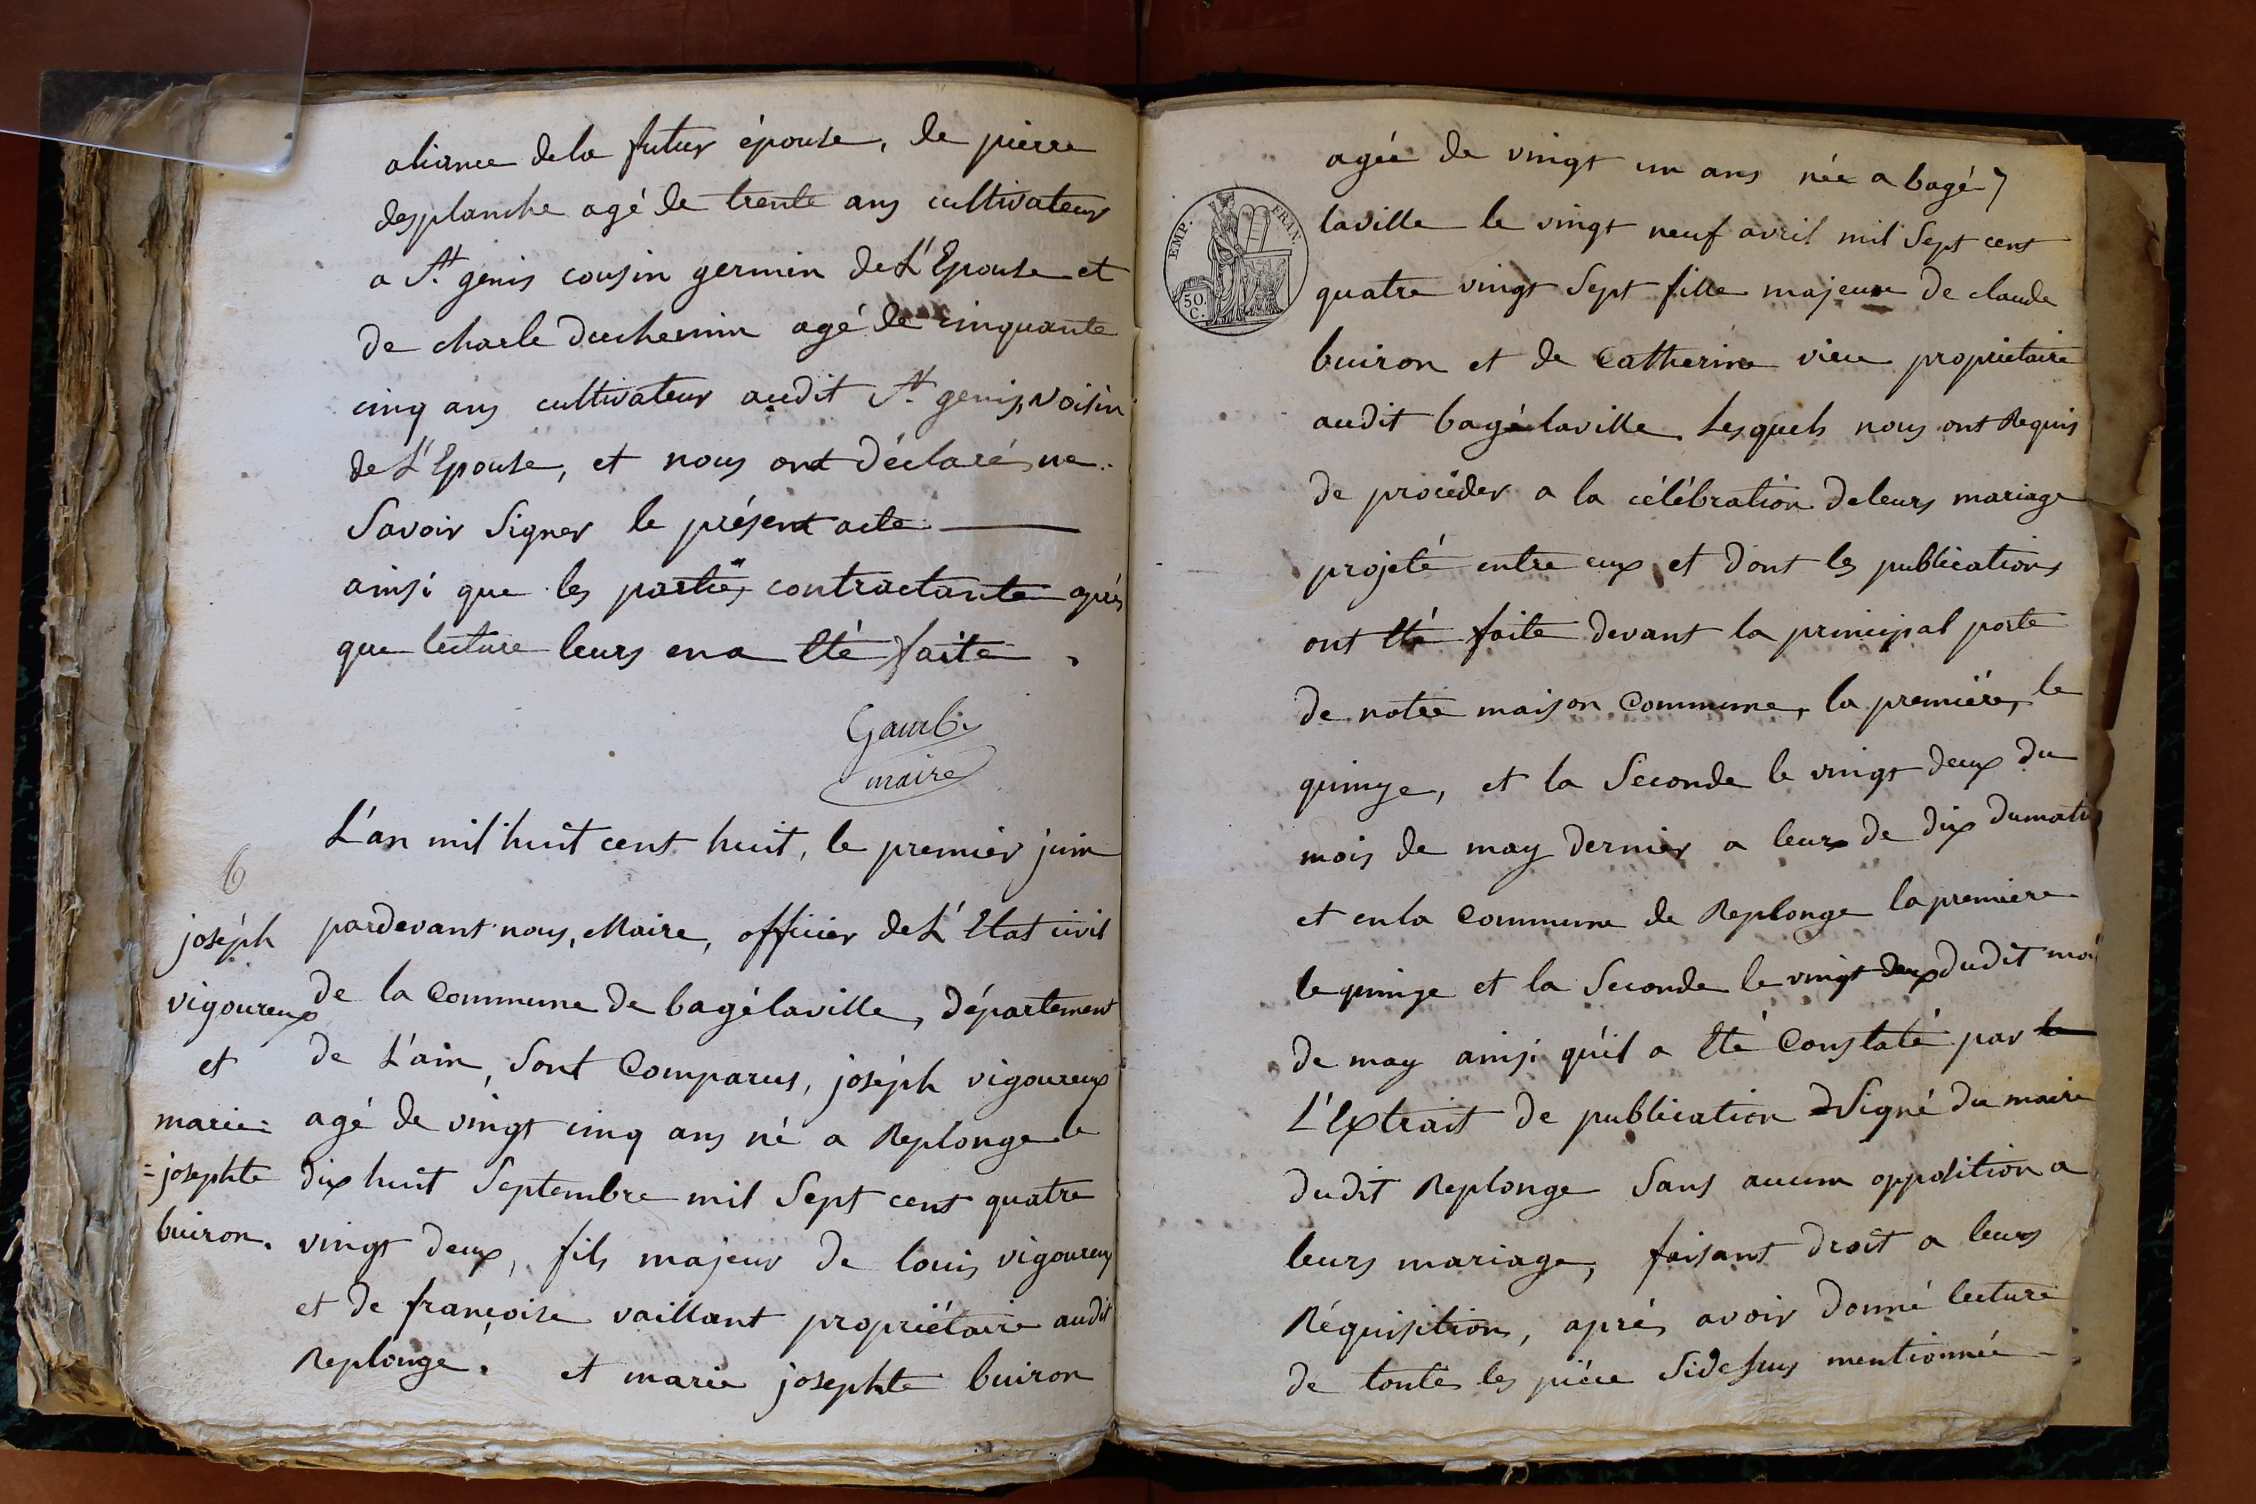 aliance dela futur épouse, de pierre
desplanche agé de trente ans cultivateur
a St. genis cousin germin de L'Epouse et
de charle duchemin agé de cinquante
cinq ans cultivateur audit St. genis, voisin
de L'Epouse, et nous ont déclaré ne
Savoir Signer le présent acte
ainsi que les parties contractante après
que lecture leurs ena été faite.
maire
6
L'an mil huit cent huit, le premier juin
pardevant nous, Maire, officier de L'Etat civil
de la Commune de bagélaville, département
de L'ain, Sont Comparus, joséph vigoureux
agé de vingt cinq ans né a Replonge le
dix huit Septembre mil Sept cent quatre
vingt deux, fils majeur de louis vigoureux
et de françoise vaillant propriétaire audit
Replonge. et marie josephte buiron
joséph
vigoureux
et
marie=
=josephte
buiron.
EMP. FRAN.
50. C.
agée de vingt un ans née a bagé
laville le vingt neuf avril mil Sept cent
quatre vingt Sept fille majeure de claude
buiron et de Catherine proprietaire
audit bagélaville Lesquels nous ont Requis
de procéder a la célébration deleurs mariage
projeté entre eux et dont les publications
ont été faite devant la principal porte
de notre maison Commune, la première, le
quinze, et la Seconde le vingt deux du
mois de may dernier a leurs de dix dumatin
et enla Commune de Replonge la premiere
le quinze et la Seconde le vingt deux dudit mois
de may ainsi qu'il a été Constaté par
L'Extrait de publication Signé du maire
dudit Replonge Sans aucun opposition a
leurs mariage, faisant droit a leurs
Réquisition, après avoir donné lecture
de toutes les piéce Sidessus mentionnée